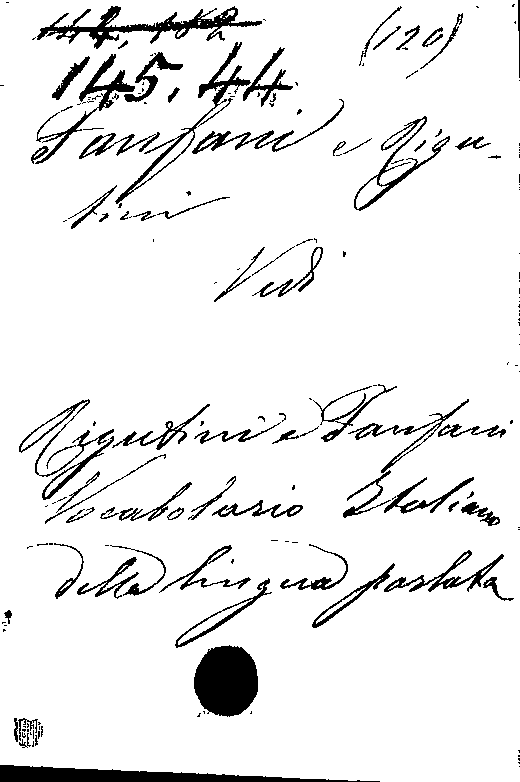 (120)
145.44
Fanfani e Rigu-
tini
Vedi
Rigutini e Fanfani
Vocabolario Italiano
della lingua parlata